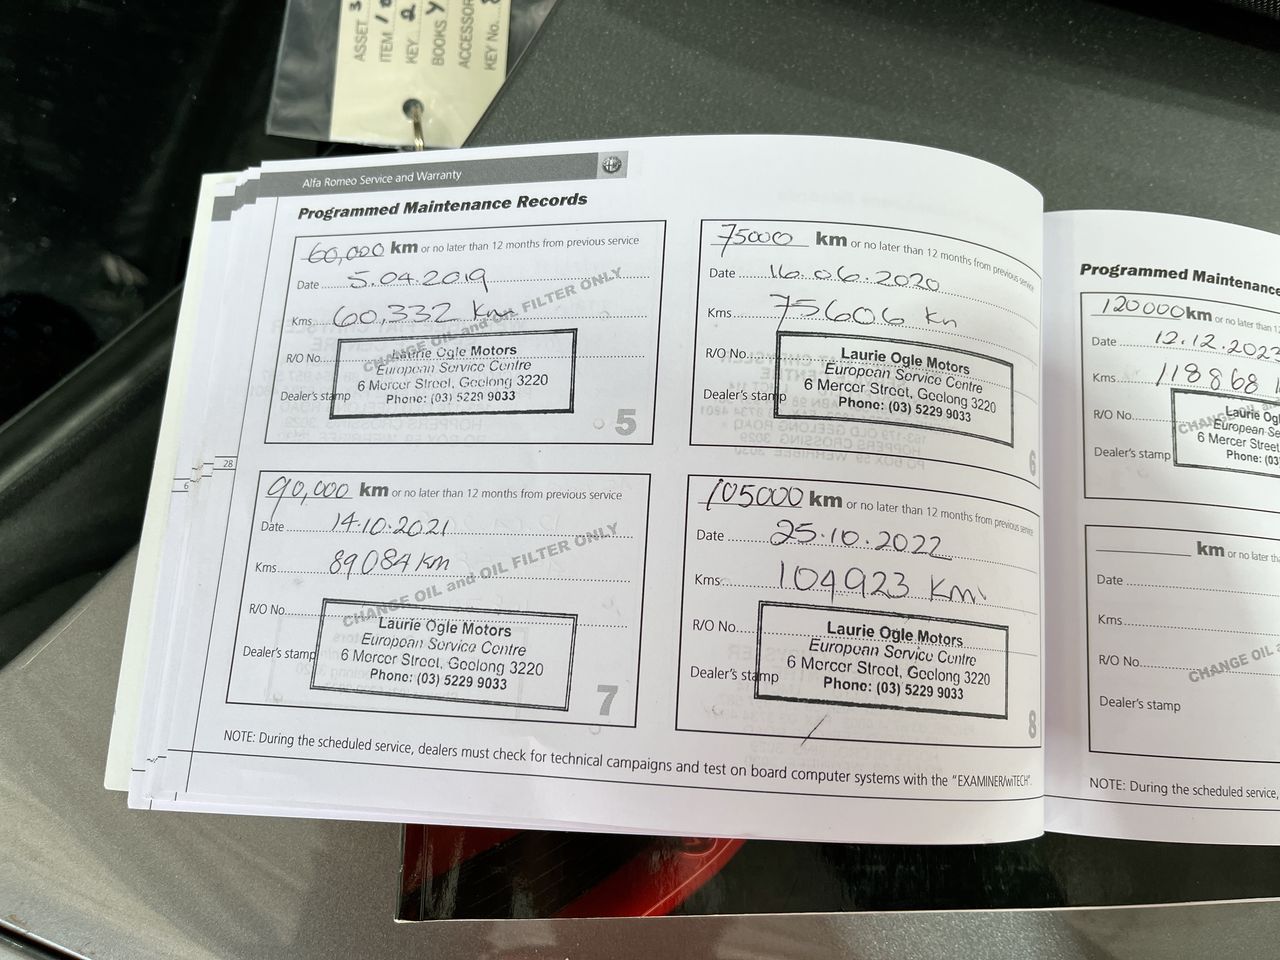 ASSET 3
ITEM
KEY 2
BOOKS Y
ACCESSOR
KEY No.
Alfa Romeo Service and Warranty
Programmed Maintenance Records
60,000 km or no later than 12 months from previous service
Date 5.04.2019
Kms 60,332 Km
CHANGE OIL and OIL FILTER ONLY
R/O No.
Dealer's stamp
Laurie Ogle Motors
European Service Centre
6 Mercer Street, Geelong 3220
Phone: (03) 5229 9033
5
75000 km or no later than 12 months from previous service
Date 16.06.2020
Kms 75606 Km
R/O No.
Dealer's stamp
Laurie Ogle Motors
European Service Centre
6 Mercer Street, Geelong 3220
Phone: (03) 5229 9033
6
28
6
90,000 km or no later than 12 months from previous service
Date 14.10.2021
Kms 89084 KM
CHANGE OIL and OIL FILTER ONLY
R/O No.
Dealer's stamp
Laurie Ogle Motors
European Service Centre
6 Mercer Street, Geelong 3220
Phone: (03) 5229 9033
7
105000 km or no later than 12 months from previous service
Date 25.10.2022
Kms 104923 Km
R/O No.
Dealer's stamp
Laurie Ogle Motors
European Service Centre
6 Mercer Street, Geelong 3220
Phone: (03) 5229 9033
8
NOTE: During the scheduled service, dealers must check for technical campaigns and test on board computer systems with the "EXAMINER/wiTECH".
Programmed Maintenance
120000 km or no later than 12
Date 12.12.2023
Kms 118868
R/O No.
CHANGE OIL
Dealer's stamp
Laurie Ogl
European Se
6 Mercer Street
Phone: (03
km or no later tha
Date
Kms
R/O No.
CHANGE OIL a
Dealer's stamp
NOTE: During the scheduled service,